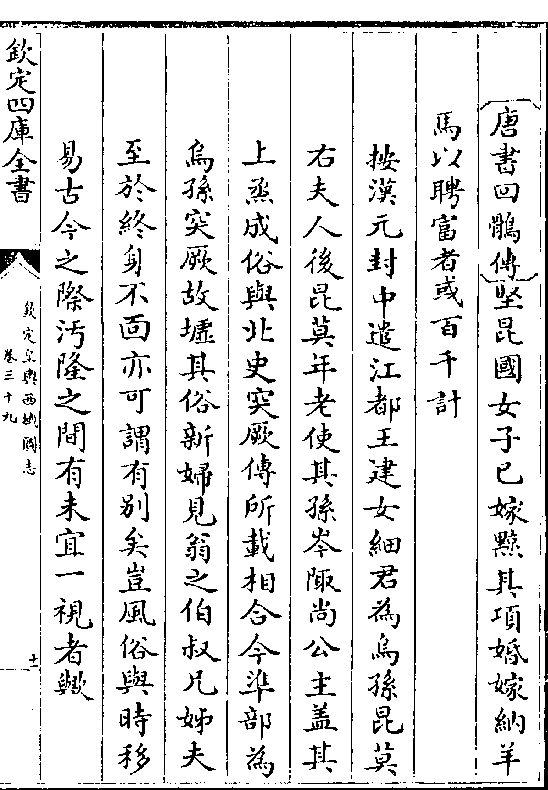 唐書回鶻傳堅昆國女子已嫁黥其項婚嫁納羊
馬以聘富者或百千計
按漢元封中遣江都王建女細君為烏孫昆莫
右夫人後昆莫年老使其孫岑陬尚公主蓋其
上烝成俗與北史突厥傳所載相合今準部為
烏孫突厥故墟其俗新婦見翁之伯叔凡姊夫
至於終身不面亦可謂有别矣豈風俗與時移
易古今之際汚隆之間有未宜一視者歟
欽定四庫全書
欽定皇輿西域圖志
卷三十九
十一